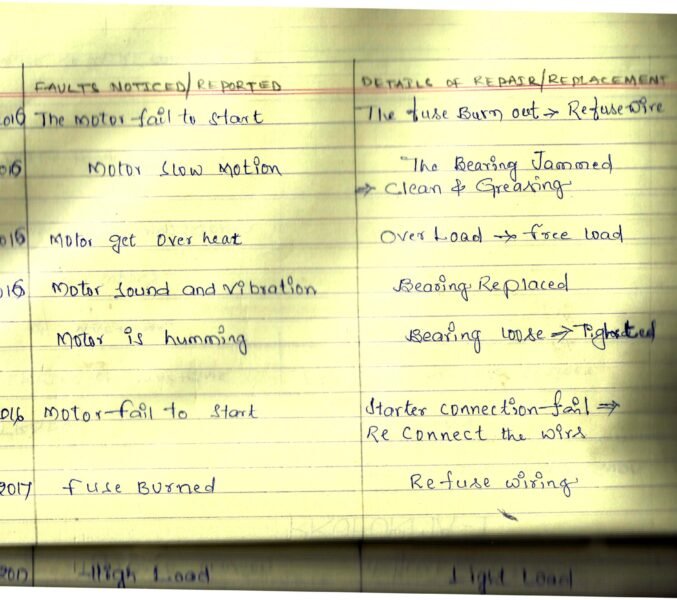 FAULTS NOTICED/REPORTED DETAILS OF REPAIR/REPLACEMENT
016 The motor fail to start The fuse Burn out → Refuse wire
016 Motor slow motion The Bearing Jammed
⇒ Clean & Greasing
016 Motor get over heat Over Load → free load
016 Motor sound and vibration Bearing Replaced
Motor is humming Bearing loose ⇒
016 Motor-fail to start Starter connection-fail ⇒
Re Connect the wirs
2017 fuse Burned Refuse wiring
2017 High Load Light Load